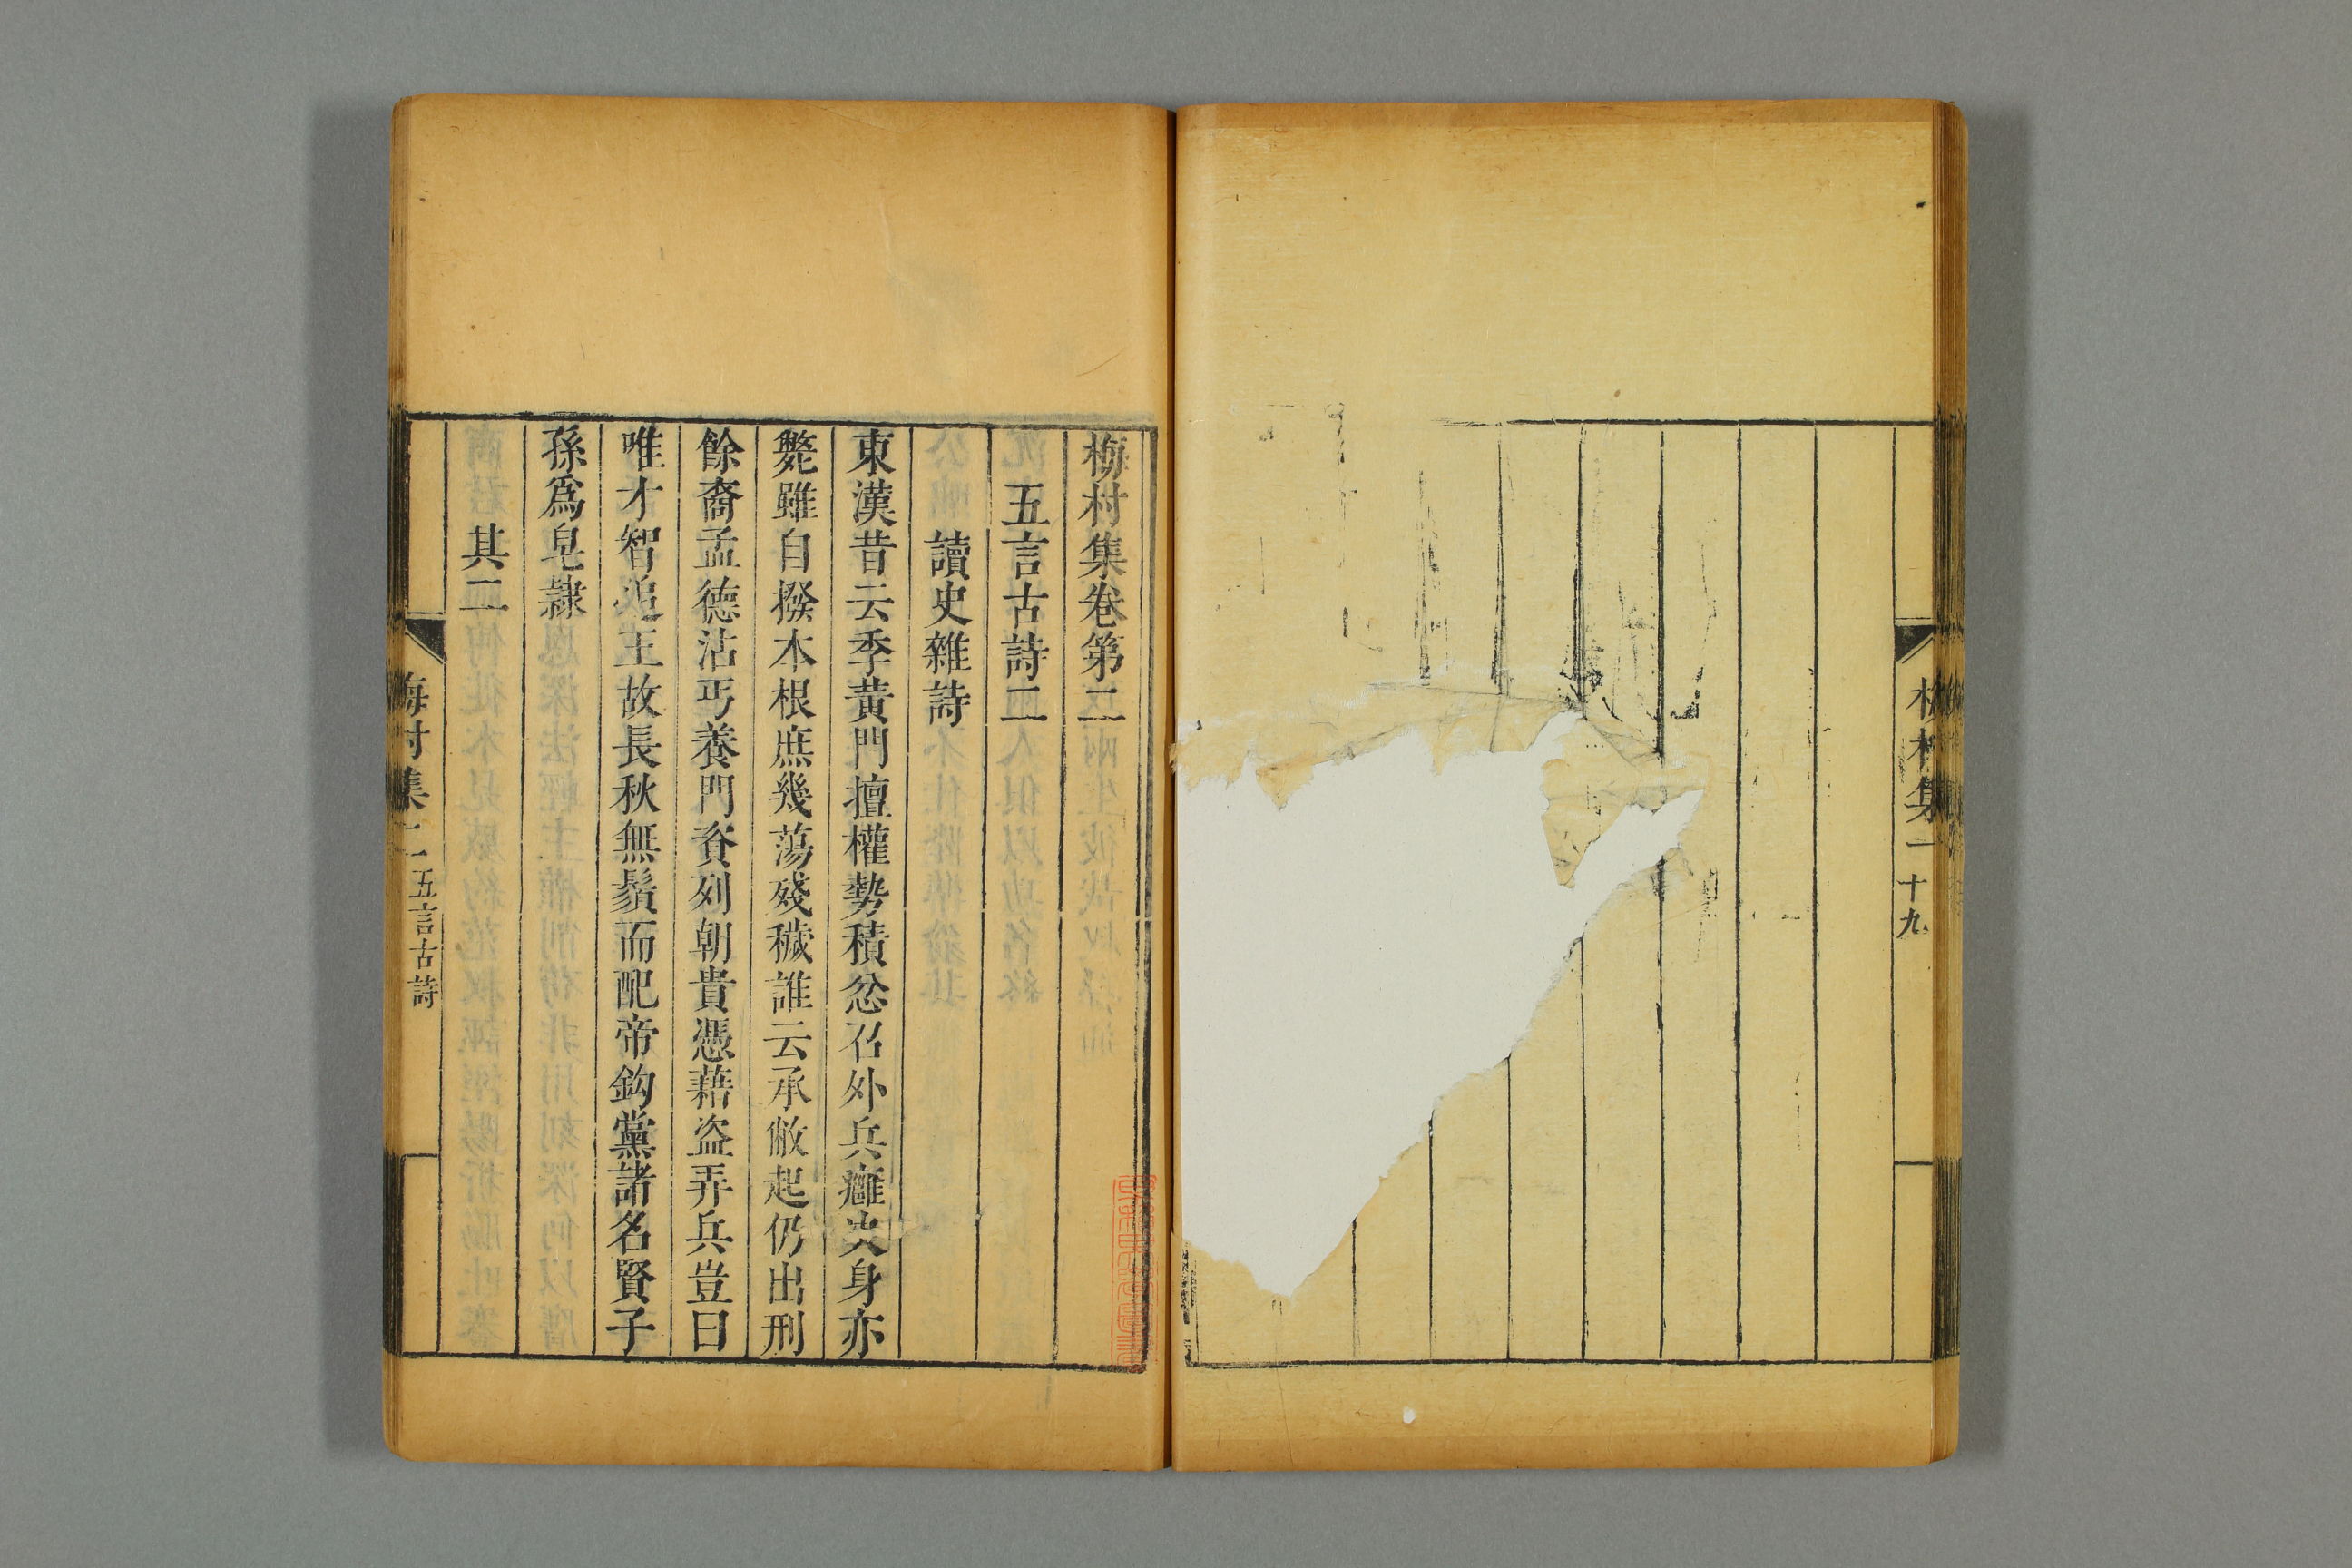 梅村集 一 十九
梅村集卷第二
五言古詩二
讀史雜詩
東漢昔云季黃門擅權勢積忿召外兵癰決身亦
斃雖自撥本根庶幾蕩殘穢誰云承敝起仍出刑
餘裔孟德沾丐養門資列朝貴憑藉盜弄兵豈曰
唯才智追王故長秋無鬚而配帝鈎黨諸名賢子
孫爲皂隸
其二
梅村集 二 五言古詩